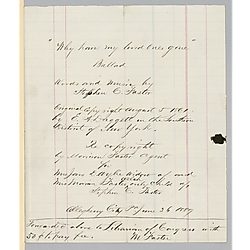 "Why have my loved ones gone"
Ballad
Words and Music by
Stephen C. Foster
Original Copyright August 5 1861
by C. A. Daggett in the Southern
District of New York.
Re copyright
by Morrison Foster Agent
for
Mrs Jane D. Wylie Widow of and
Marion Foster Welsh only child of
Stephen C. Foster
Allegheny City Pa June 26 1889
Forwarded above to Librarian of Congress with
50 cts pay fee. M. Foster